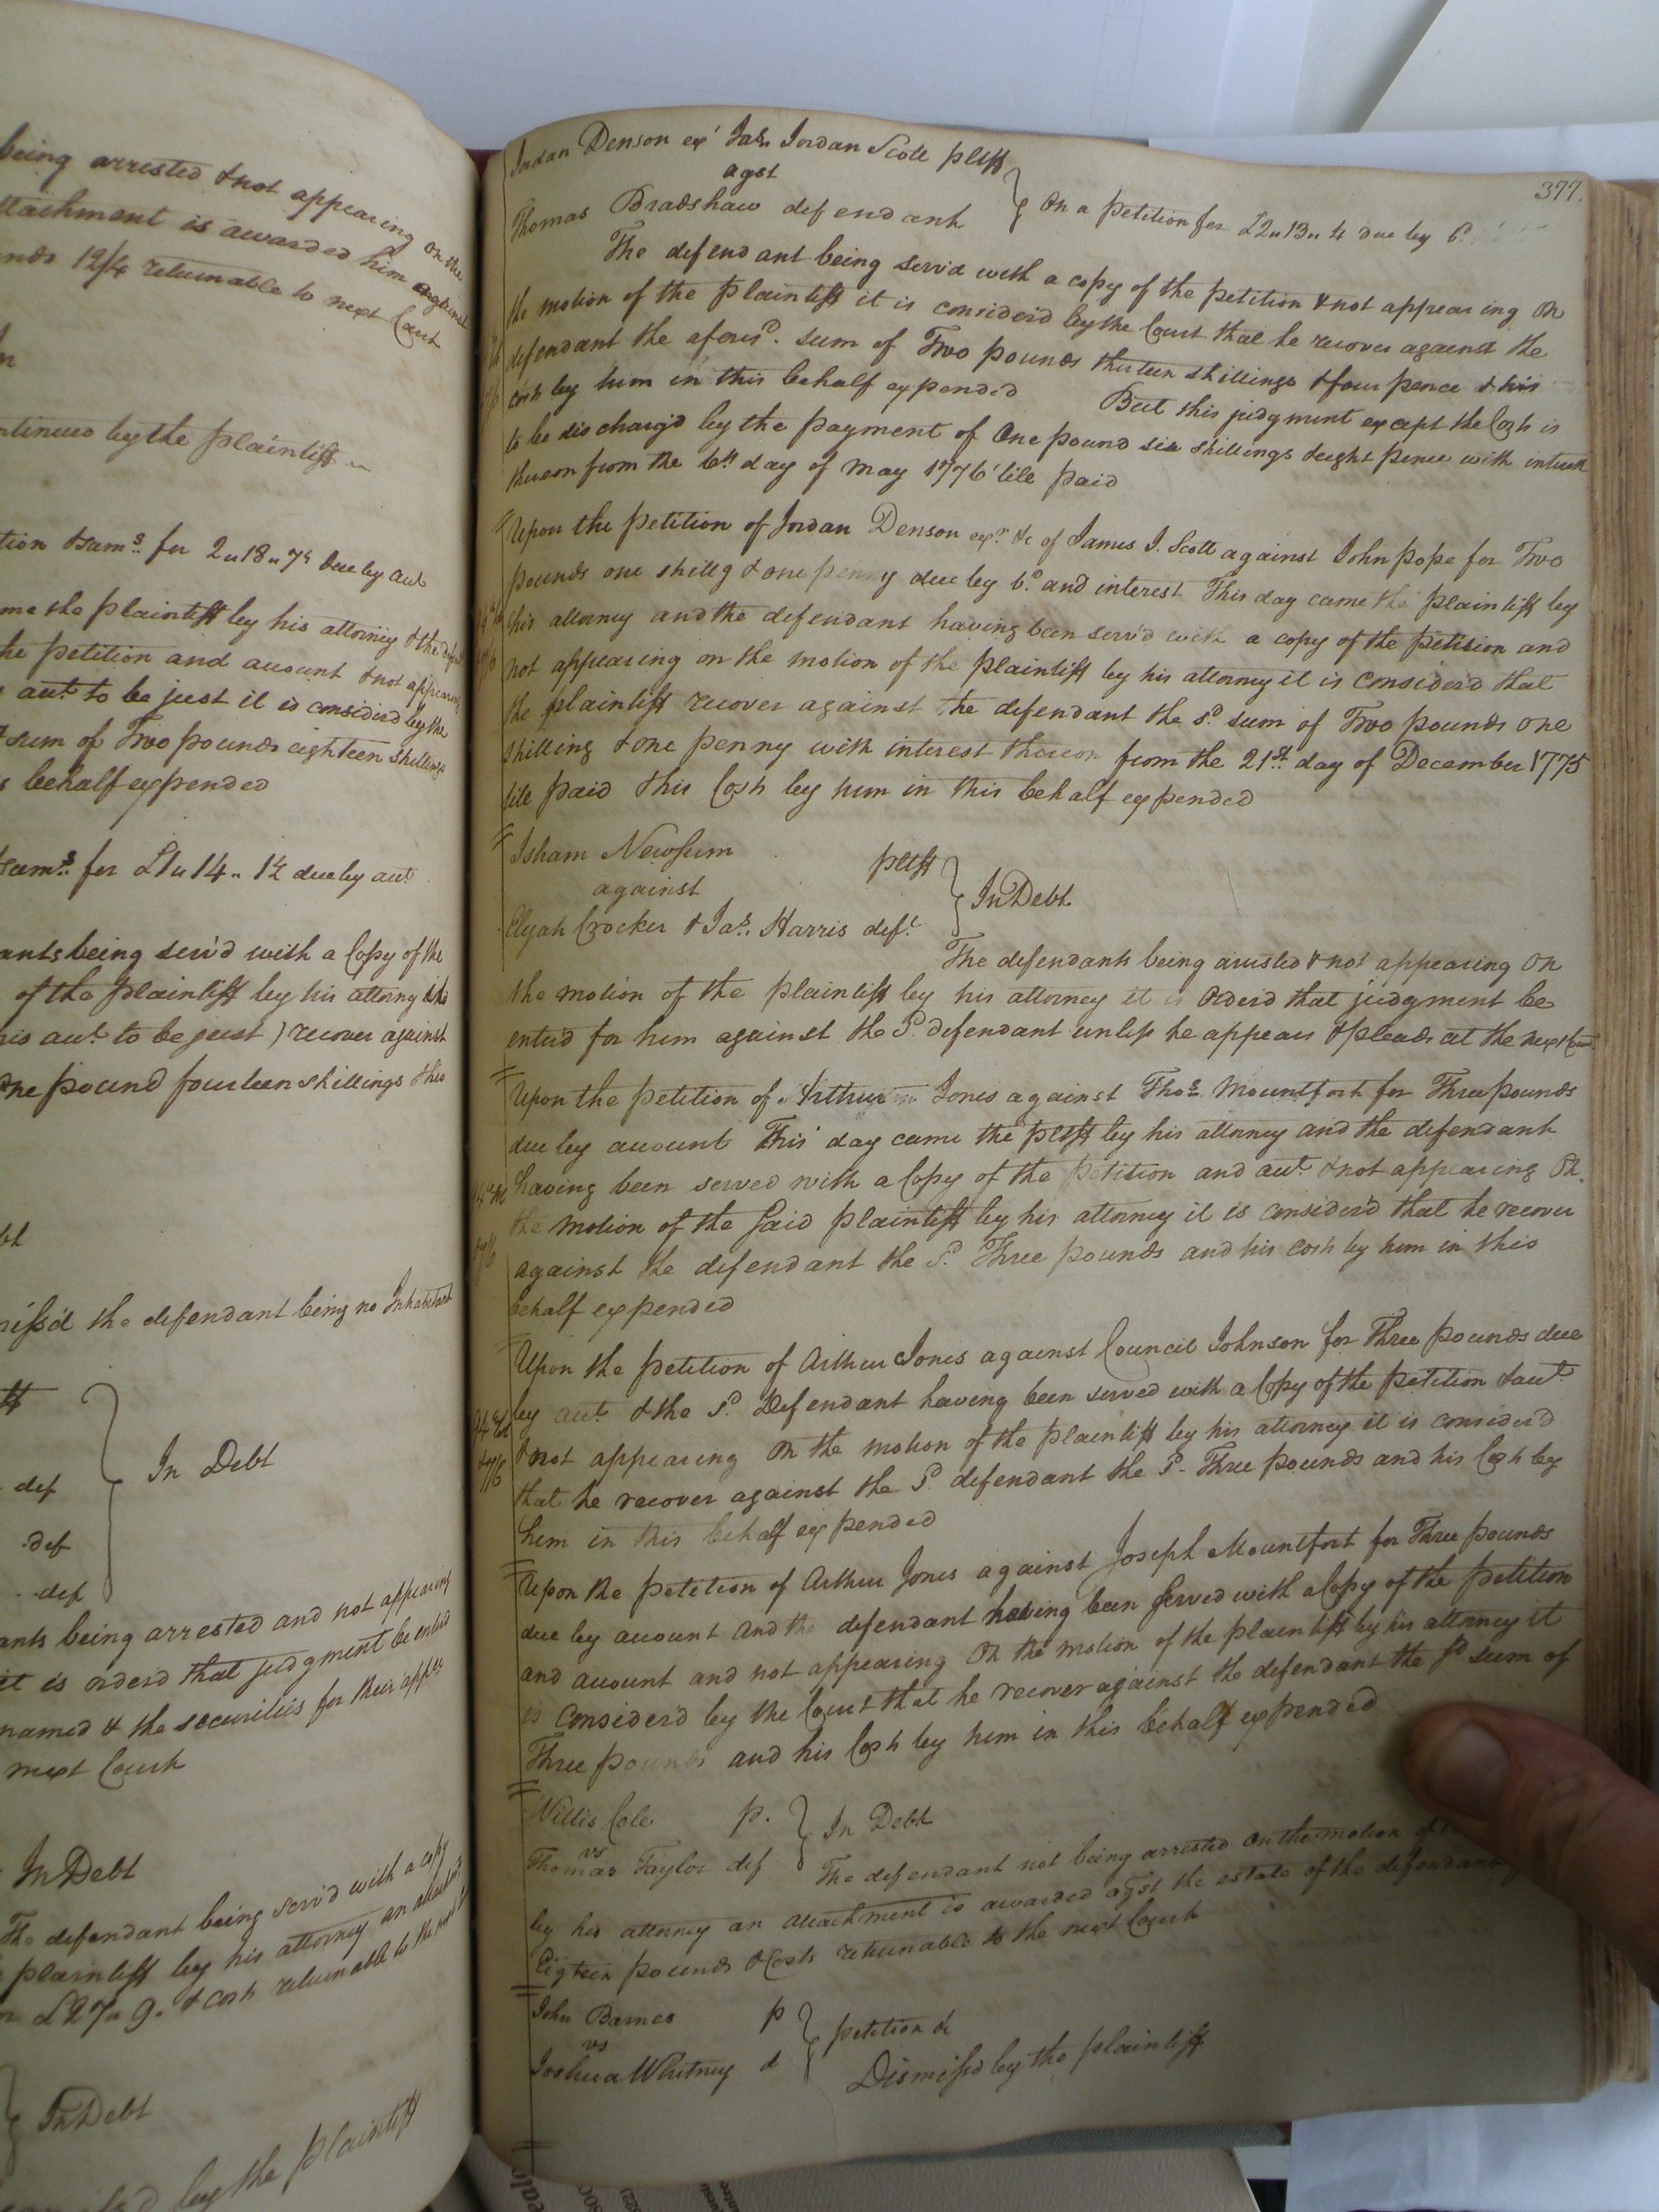 being arrested & not appearing on the
ttachment is awarded him against
nds 12/4 returnable to next Court
ntinued by the plaintiff
tion & sams. for 2"18"7½ due by aut
me the plaintiff by his attorney & the defend
he petition and account & not appearing
aut. to be just it is considerd by the
sum of Two pounds eighteen shillings
s behalf expended
& sums. for £1"14"1½ due by aut.
ants being serv'd with a Copy of the
of the plaintiff by his attorny
his aut. to be just) recover against
One pound fourteen shillings & his
miss'd the defendant being no Inhabitant
def
def
def
In Debt
ants being arrested and not appearing
it is orderd that judgment be entred
named & the securities for their appea
next Court
In Debt
The defendant being serv'd with a copy
plaintiff by his attorney an attachmt
£27"9. & cost returnable to the next
In Debt
by the plaintiff
377.
Jordan Denson exr Jas. Jordan Scott pltff
agst
Thomas Bradshaw defendant
On a petition for £2"13"4 due by
The defendant being serv'd with a copy of the petition & not appearing On
the motion of the plaintiff it is considerd by the Court that he recover against the
defendant the aforesd. sum of Two pounds thirteen shillings & four pence & his
costs by him in this behalf expended But this judgment except the Costs is
to be dischargd by the payment of One pound six shillings & eight pence with interest
thereon from the 6th day of May 1776 till paid
Upon the petition of Jordan Denson exr. &c of James J. Scott against John pope for Two
pounds one shillg & one penny due by bd. and interest This day came the plaintiff by
his attorney and the defendant having been serv'd with a copy of the petition and
not appearing on the motion of the plaintiff by his attorney it is considerd that
the plaintiff recover against the defendant the sd. sum of Two pounds one
shilling & one penny with interest thereon from the 21st. day of December 1775
till paid & his Costs by him in this behalf expended
Isham Newsum pltff
against
Elijah Crocker & Jas. Harris deft.
In Debt
The defendants being arrested & not appearing On
the motion of the plaintiff by his attorney it is Orderd that judgment be
enterd for him against the Sd. defendant unless he appears & pleads at the next Court
Upon the petition of Arthur Jones against Thos. Mountfort for Three pounds
due by account This day came the pltff by his attorney and the defendant
having been served with a Copy of the petition and aut. & not appearing On
the motion of the said plaintiff by his attorney it is considerd that he recover
against the defendant the Sd. Three pounds and his costs by him in this
behalf expended
Upon the petition of Arthur Jones against Council Johnson for Three pounds due
by aut. & the Sd. Defendant having been served with a Copy of the petition & aut.
& not appearing On the motion of the plaintiff by his attorney it is considerd
that he recover against the Sd. defendant the Sd. Three pounds and his Costs by
him in this behalf expended
Upon the petition of Arthur Jones against Joseph Mountfort for Three pounds
due by account and the defendant having been served with a Copy of the petition
and account and not appearing On the motion of the plaintiff by his attorney it
is Considerd by the Court that he recover against the defendant the sd sum of
Three pounds and his Costs by him in this behalf expended
Willis Cole p.
vs
Thomas Taylor def
In Debt
The defendant not being arrested on the motion of
by his attorney an attachment is awarded agst the estate of the defendant
Eigteen pounds & Costs returnable to the next Court
John Barnes p
vs
Joshua Whitney d
petition &c
Dismiss'd by the plaintiff